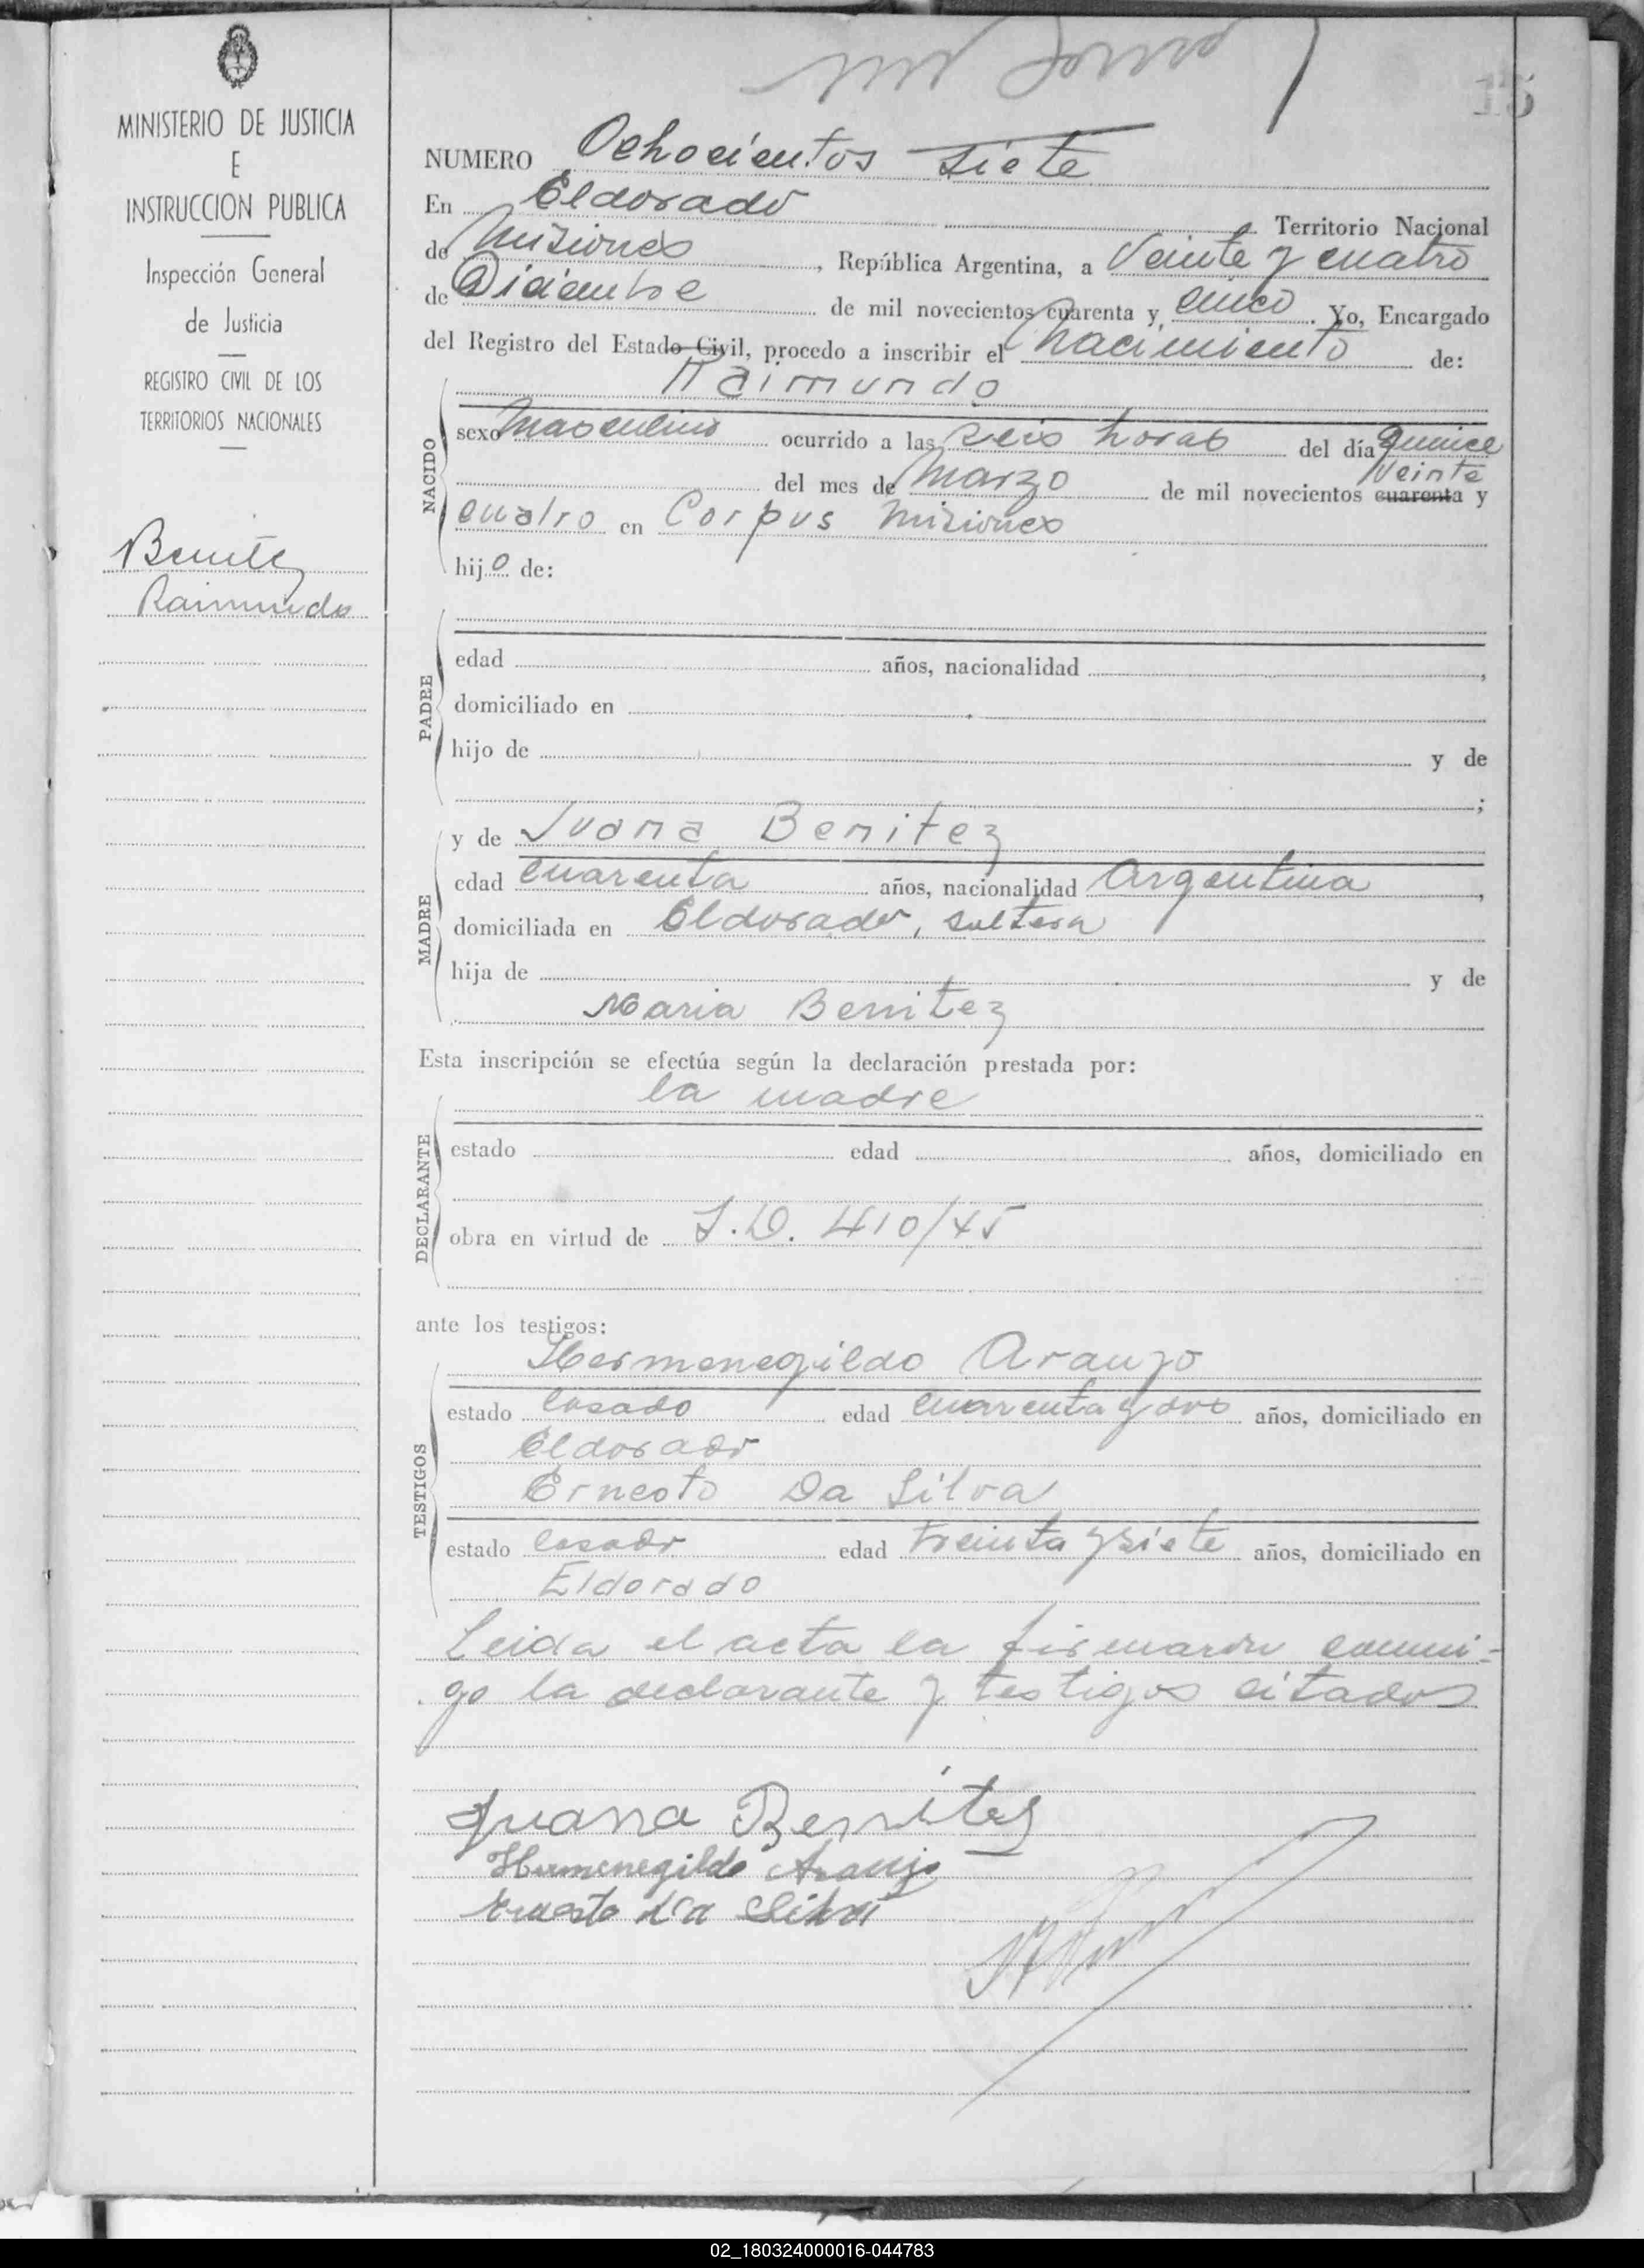 15
MINISTERIO DE JUSTICIA
E
INSTRUCCION PUBLICA
Inspección General
de Justicia
REGISTRO CIVIL DE LOS
TERRITORIOS NACIONALES
Benitez
Raimundo
NUMERO Ochocientos siete
En Eldorado Territorio Nacional
de Misiones, República Argentina, a Veinte y cuatro
de Diciembre de mil novecientos cuarenta y cinco. Yo, Encargado
del Registro del Estado Civil, procedo a inscribir el nacimiento de:
Raimundo
NACIDO
sexo Masculino ocurrido a las seis horas del día quince
veinte
del mes de Marzo de mil novecientos cuarenta y
cuatro en Corpus Misiones
hijo de:
PADRE
edad años, nacionalidad ,
domiciliado en
hijo de y de
;
MADRE
y de Juana Benitez
edad cuarenta años, nacionalidad Argentina,
domiciliada en Eldorado, soltera
hija de y de
Maria Benitez
Esta inscripción se efectúa según la declaración prestada por:
la madre
DECLARANTE
estado edad años, domiciliado en
obra en virtud de S.D. 410/45
ante los testigos:
TESTIGOS
Hermenegildo Araujo
estado casado edad cuarenta y dos años, domiciliado en
Eldorado
Ernesto Da Silva
estado casado edad treinta y siete años, domiciliado en
Eldorado
Leida el acta la firmaron conmi-
go la declarante y testigos citados
Juana Benitez
Hermenegildo Araujo
Ernesto da Silva
02_180324000016-044783